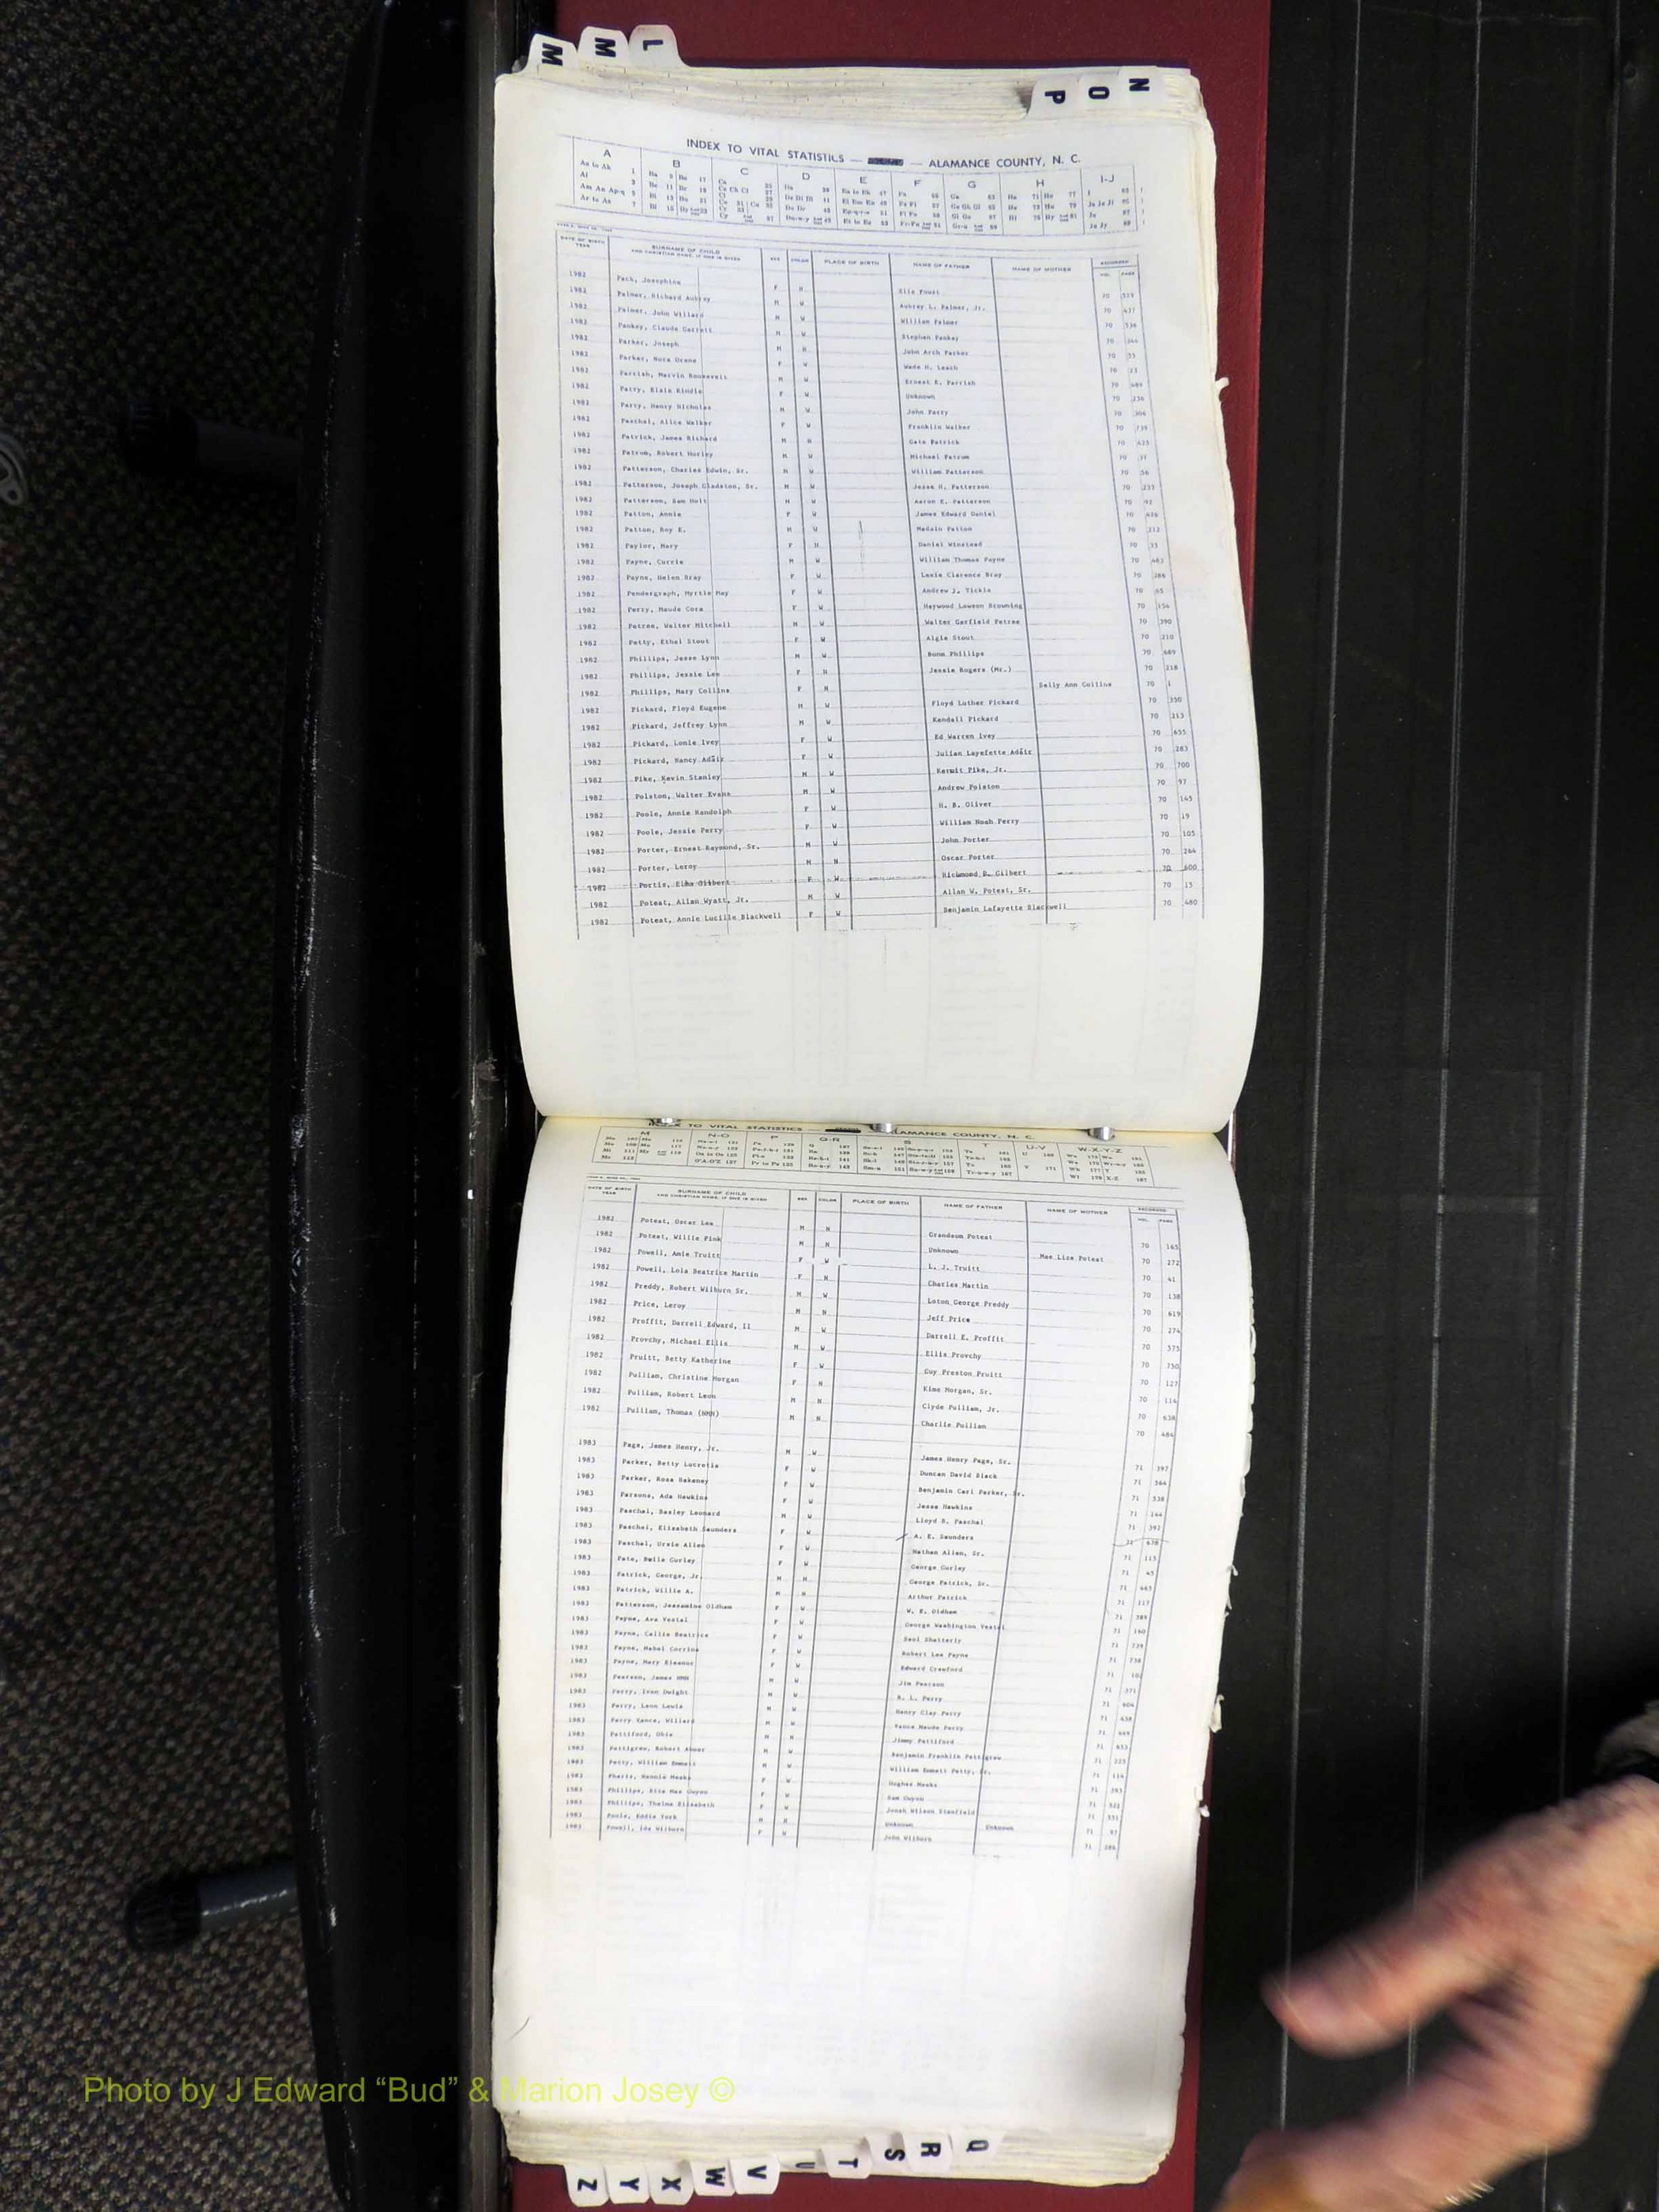 M M L
N O P
INDEX TO VITAL STATISTICS — — ALAMANCE COUNTY, N. C.
A B C D E F G H I-J
DATE OF BIRTH YEAR SURNAME OF CHILD AND CHRISTIAN NAME, IF ONE IS GIVEN SEX COLOR PLACE OF BIRTH NAME OF FATHER NAME OF MOTHER RECORDED VOL. PAGE
1982 Pach, Josephine F N Elis Foust 70 519
1982 Palmer, Richard Aubrey M W Aubrey L. Palmer, Jr. 70 437
1982 Palmer, John Willard M W William Palmer 70 536
1982 Pankey, Claude Garrett M W Stephen Pankey 70
1982 Parker, Joseph M N John Arch Parker 70 55
1982 Parker, Nora Urene F W Wade H. Leach 70 23
1982 Parrish, Marvin Roosevelt M W Ernest R. Parrish 70
1982 Parry, Elsie Kindle F W Unknown 70 236
1982 Parry, Henry Nicholas M W John Parry 70 306
1982 Paschal, Alice Walker F W Franklin Walker 70 739
1982 Patrick, James Richard M N Gate Patrick 70 425
1982 Patrum, Robert Hurley M W Michael Patrum 70 37
1982 Patterson, Charles Edwin, Sr. M W William Patterson 70 56
1982 Patterson, Joseph Gladston, Sr. M W Jesse H. Patterson 70 233
1982 Patterson, Sam Holt M W Aaron E. Patterson 70 92
1982 Patton, Annie F W James Edward Daniel 70
1982 Patton, Roy E. M W Madain Patton 70 212
1982 Paylor, Mary F N Daniel Winstead 70 33
1982 Payne, Currie M W William Thomas Payne 70 463
1982 Payne, Helen Bray F W Lexie Clarence Bray 70 286
1982 Pendergraph, Myrtle May F W Andrew J. Tickle 70 65
1982 Perry, Maude Cora F W Haywood Lawson Browning 70 154
1982 Petree, Walter Mitchell M W Walter Garfield Petree 70 390
1982 Petty, Ethel Stout F W Algie Stout 70 210
1982 Phillips, Jesse Lynn M W Bunn Phillips 70 689
1982 Phillips, Jessie Lee F N Jessie Rogers (Mr.) 70 218
1982 Phillips, Mary Collins F N Sally Ann Collins 70 1
1982 Pickard, Floyd Eugene M W Floyd Luther Pickard 70 350
1982 Pickard, Jeffrey Lynn M W Kendall Pickard 70 213
1982 Pickard, Lonie Ivey F W Ed Warren Ivey 70 655
1982 Pickard, Nancy Adair F W Julian Layafette Adair 70 283
1982 Pike, Kevin Stanley M W Kermit Pike, Jr. 70 700
1982 Polston, Walter Evans M W Andrew Polston 70 97
1982 Poole, Annie Randolph F W H. B. Oliver 70 145
1982 Poole, Jessie Perry F W William Noah Perry 70 19
1982 Porter, Ernest Raymond, Sr. M W John Porter 70 105
1982 Porter, Leroy M N Oscar Porter 70 264
1982 Portis, Elma Gilbert F W Richmond D. Gilbert 70 600
1982 Poteat, Allan Wyatt, Jr. M W Allan W. Poteat, Sr. 70 15
1982 Poteat, Annie Lucille Blackwell F W Benjamin Lafayette Blackwell 70 480
INDEX TO VITAL STATISTICS — ALAMANCE COUNTY, N. C.
M N-O P Q-R S T U-V W-X-Y-Z
DATE OF BIRTH YEAR SURNAME OF CHILD AND CHRISTIAN NAME, IF ONE IS GIVEN SEX COLOR PLACE OF BIRTH NAME OF FATHER NAME OF MOTHER RECORDED VOL. PAGE
1982 Poteat, Oscar Lee M N Grandsom Poteat 70 165
1982 Poteat, Willie Pink M N Unknown Mae Liza Poteat 70 272
1982 Powell, Amie Truitt F W L. J. Truitt 70 41
1982 Powell, Lola Beatrice Martin F N Charles Martin 70 138
1982 Preddy, Robert Wilburn Sr. M W Loton George Preddy 70 619
1982 Price, Leroy M N Jeff Price 70 274
1982 Proffit, Darrell Edward, II M W Darrell E. Proffit 70 573
1982 Provchy, Michael Ellis M W Ellis Provchy 70 750
1982 Pruitt, Betty Katherine F W Guy Preston Pruitt 70 127
1982 Pulliam, Christine Morgan F N Kime Morgan, Sr. 70 114
1982 Pulliam, Robert Leon M N Clyde Pulliam, Jr. 70 638
1982 Pulliam, Thomas (NMN) M N Charlie Pulliam 70 484
1983 Page, James Henry, Jr. M W James Henry Page, Sr. 71 397
1983 Parker, Betty Lucretia F W Duncan David Black 71 564
1983 Parker, Rosa Hakeney F W Benjamin Carl Parker, Sr. 71 538
1983 Parsons, Ada Hawkins F W Jesse Hawkins 71 144
1983 Paschal, Baxley Leonard M W Lloyd B. Paschal 71 392
1983 Paschal, Elizabeth Saunders F W A. E. Saunders 71 678
1983 Paschal, Ursie Allen F W Nathan Allen, Sr. 71 115
1983 Pate, Bulie Gurley F W George Gurley 71 45
1983 Patrick, George, Jr. M N George Patrick, Sr. 71 465
1983 Patrick, Willie A. M N Arthur Patrick 71 117
1983 Patterson, Jessamine Oldham F W W. E. Oldham 71 389
1983 Payne, Ava Vestal F W George Washington Vestal 71 160
1983 Payne, Callie Beatrice F W Saul Shatterly 71 739
1983 Payne, Mabel Corrina F W Robert Lee Payne 71 738
1983 Payne, Mary Eleanor F W Edward Crawford 71
1983 Pearson, James NMN M W Jim Pearson 71 371
1983 Perry, Ivon Dwight M W R. L. Perry 71 604
1983 Perry, Leon Lewis M W Henry Clay Perry 71 438
1983 Perry Vance, Willard M W Vance Maude Perry 71 449
1983 Pettiford, Obie M N Jimmy Pettiford 71 653
1983 Pettigrew, Robert Abner M W Benjamin Franklin Pettigrew 71 225
1983 Petty, William Emmett M W William Emmett Petty, Sr. 71 114
1983 Pharis, Nannie Meeks F W Hughes Meeks 71 393
1983 Phillips, Etta Mae Guyon F W Sam Guyon 71 521
1983 Phillips, Thelma Elizabeth F W Jonah Wilson Stanfield 71 551
1983 Poole, Eddie York M N Unknown Unknown 71 97
1983 Powell, Ida Wilburn F W John Wilburn 71 286
Photo by J Edward “Bud” & Marion Josey ©
Z Y X W V U T S R Q